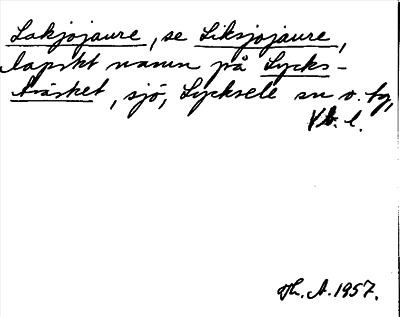 Lakjojaure, se Liksjojaure,
lapskt namn på Lycks-
träsket, sjö, Lycksele sn o. tg,
Vb. l.
Th. A. 1957.